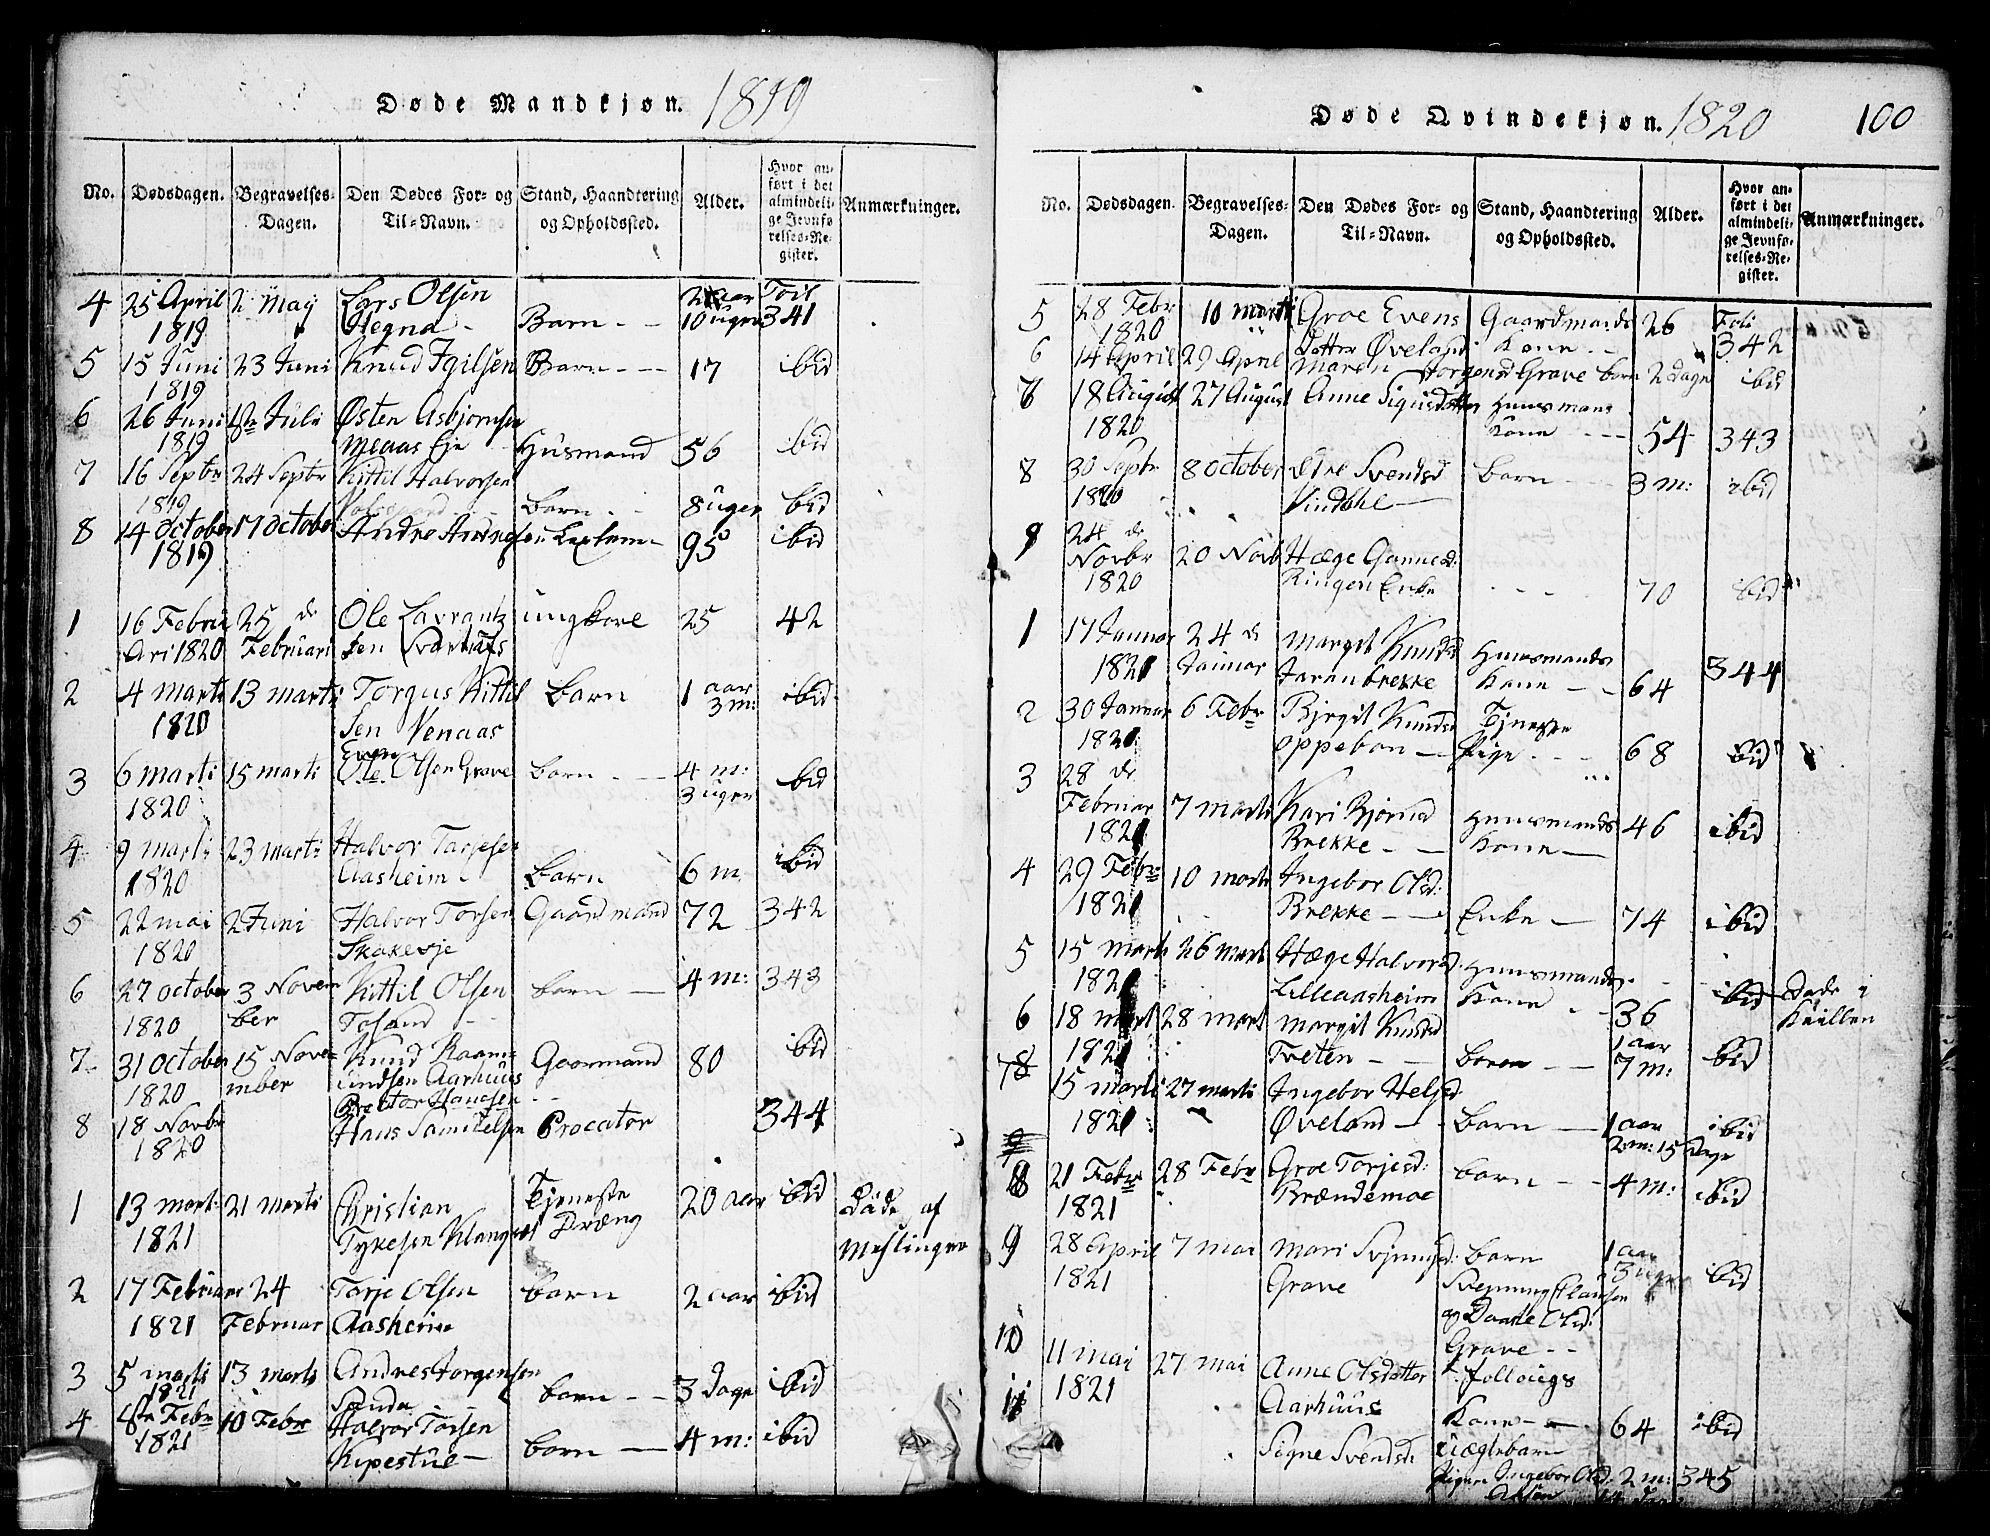 Døde Mandkjøn. 1819
No. Dødsdagen. Begravelses-Dagen. Den Dødes For- og Til-Navn. Stand, Haandtering og Opholdssted. Alder. Hvor anført i det almindelige Jevnførelses-Register. Anmærkninger.
4 25 April 2 May Lars Olsen 2 aar Foil
1819 Hegna - Barn - - 10 uger 341
5 15 Juni 23 Juni Knud Igilsen Barn - - 17 ibid
1819
6 26 Juni 1ste Juli Østen Asbjornsen
1819 Meaas Eje Husmand 56 ibid
7 16 Septr 24 Septr Kittil Halvorsen
1819 Barn - - 8 uger ibid
8 14 October 17 October Andre Andresen 95 ibid
1819
1 16 Febru 25 de Ole Lavrantz ungkare 25 42
ari 1820 Februari sen Svartufs
2 4 marti 13 marti Torgus Kittil barn 1 aar ibid
1820 sen Venaas 3 m:
Even
3 6 marti 15 marti Ole Olsen Grave barn - - 4 m: ibid
1820 3 uger
4 9 marti 23 marti Halvor Tarjesen ibid
1820 Aasheim - barn 6 m
5 22 mai 2 Juni Halvor Torsen Gaardmand 72 342
1820 Skakesje
6 27 october 3 Novem Kittil Olsen barn - 4 m: 343
1820 ber Tosand
7 31 October 15 Nove Knud Raam- Goormand 80 ibid
1820 mber undsen Aarhuus
Procator Hansen
8 18 Novbr Hans Samuelsen Procator 344
1820
1 13 mart 21 marti Christian Tjeneste 20 aar ibid Døde af
1821 Tykesen Klanges Dræng Meslinger
2 17 Februar 24 Torje Olsen barn 2 aar ibid
1821 Februar Aasheim
3 5 marti 13 marti Andres Jorgensen barn - - 3 Dage ibid
1821 Sanda
4 8de Febr 10 Febr Halvor Torsen
1821 Kipestue - barn - 4 m: ibid
Døde Qvindekjøn. 1820 100
No. Dødsdagen. Begravelses-Dagen. Den Dødes For- og Til-Navn. Stand, Haandtering og Opholdssted. Alder. Hvor anført i det almindelige Jevnførelses-Register. Anmærkninger.
5 28 Febr 10 marti Groe Evens Gaardmands 26 Foli
1820 Datter Øveland Kone - - 342
6 14 April 29 April Maren Jorgensd Grave barn 2 dage ibid
7 18 August 27 August Anne Sigusdatter Huusmans
1820 Kone - - - 54 343
8 30 Septr 8 October Svendsd barn - - 3 m: ibid
1820 Vindale -
9 24 de
Novbr 20 Novb Hæge Gunnesd:
1820 Ringen Enke - - - 70 ibid
1 17 Januar 24 de Margit Knuds Huusmands
1821 Januar Jaranbrekke Kone - - 64 344
2 30 Januar 6 Febr Birgit Knuds Tjeneste
1821 oppebøn - Pige - - - 68 ibid
3 28 de
Februar 7 marti Kari Bjornsd Huusmands 46 ibid
1821 Brekke - - Kone -
4 29 Febr: 10 marti Ingebor Olsd:
1821 Brekke - - Enke - 74 ibid
5 15 marti 26 marti Hæge Halvorsd Huusmands
1821 Lilleaasheim Kone - - 36 ibid Døde i
6 18 mart 28 mart Margit Knutsd
1821 Tveten - - baren - - 1 aar 7 m: ibid
7 15 marti 27 marti Ingebor Helsed
1821 Øveland - - barn - 1 aar ibid
2 m: 15 Dage
8 21 Febr 28 Febr Groe Torjesd: barn - - 4 m: ibid
1821 Brændemoe
9 28 April 7 mai Mari Svjenungsd: barn 1 aar
1821 Grave 3 uger ibid
og Daatte Olsd:
Grave - -
10 11 mai 27 mai Anne Olsdatter
1821 Aarhuus Kone - - 64 ibid
11 Signe Svendsd: Uægtebarn
Pigen Ingebor Olsd: 2 m: 345